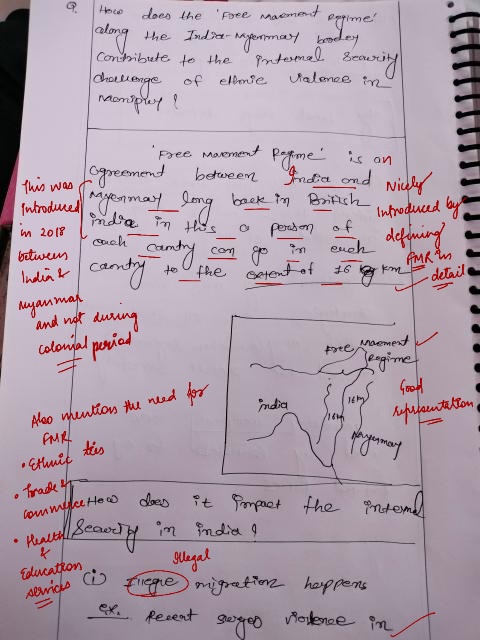 Q. How does the 'Free Movement Regime'
along the India-Myanmar border
Contribute to the internal Security
challenge of ethnic violence in
Manipur?
'Free Movement Regime' is an
agreement between India and
Myanmar long back in British
india in this a person of
each country can go in each
country to the extent of 16 km
This was
Introduced
in 2018
between
India &
myanmar
and not during
colonial period
Nicely
Introduced by
defining
FMR in
detail
Free Movement
Regime
india
16km
16km
Myanmar
Good
representation
Also mention the need for
FMR
• Ethnic ties
• Trade &
commerce
• Health
&
Education
services
How does it impact the internal
Security in india?
Illegal
(i) Illegle migration happens
ex. Recent violence in